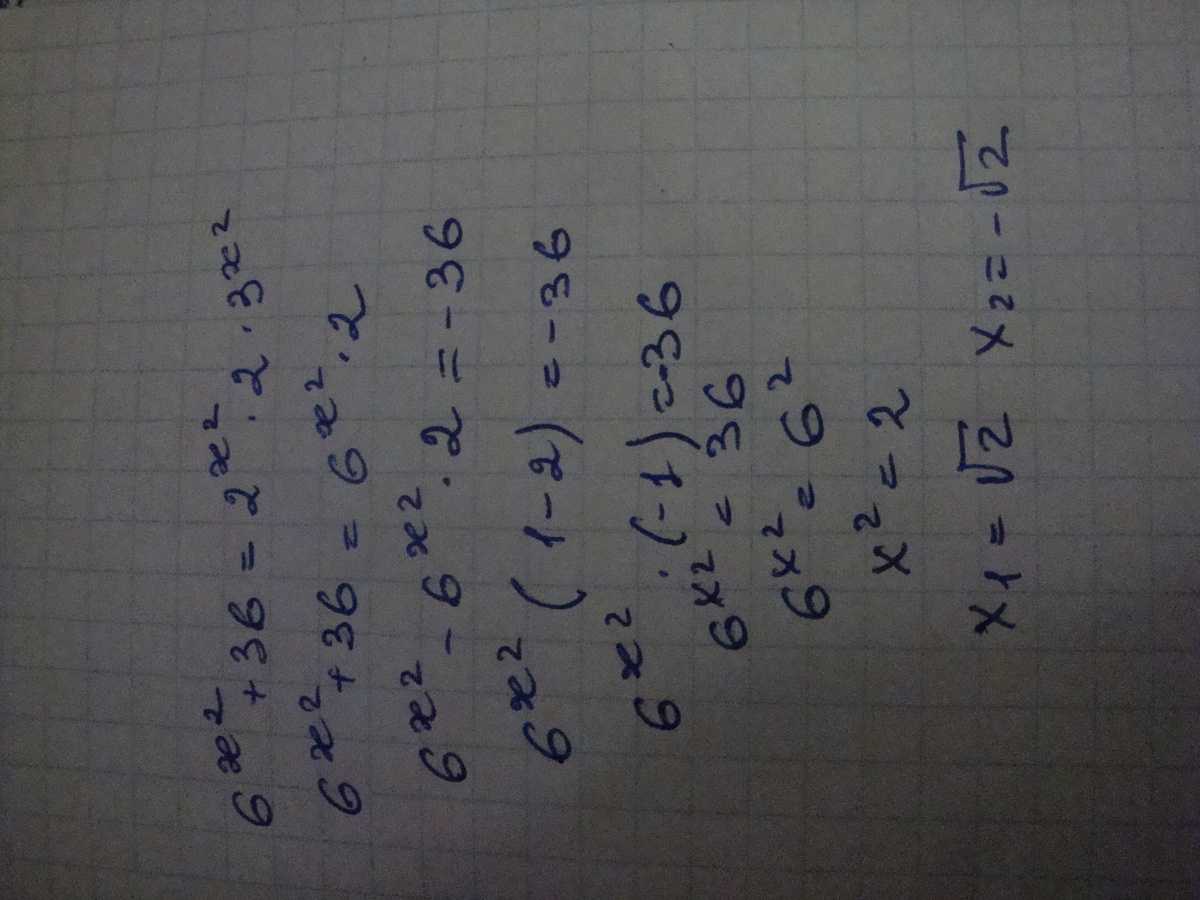 6^{x^2} + 36 = 2^{x^2} · 2 · 3^{x^2}
6^{x^2} + 36 = 6^{x^2} · 2
6^{x^2} - 6^{x^2} · 2 = -36
6^{x^2} (1-2) = -36
6^{x^2} · (-1) = -36
6^{x^2} = 36
6^{x^2} = 6^2
x^2 = 2
x_1 = √2 x_2 = -√2